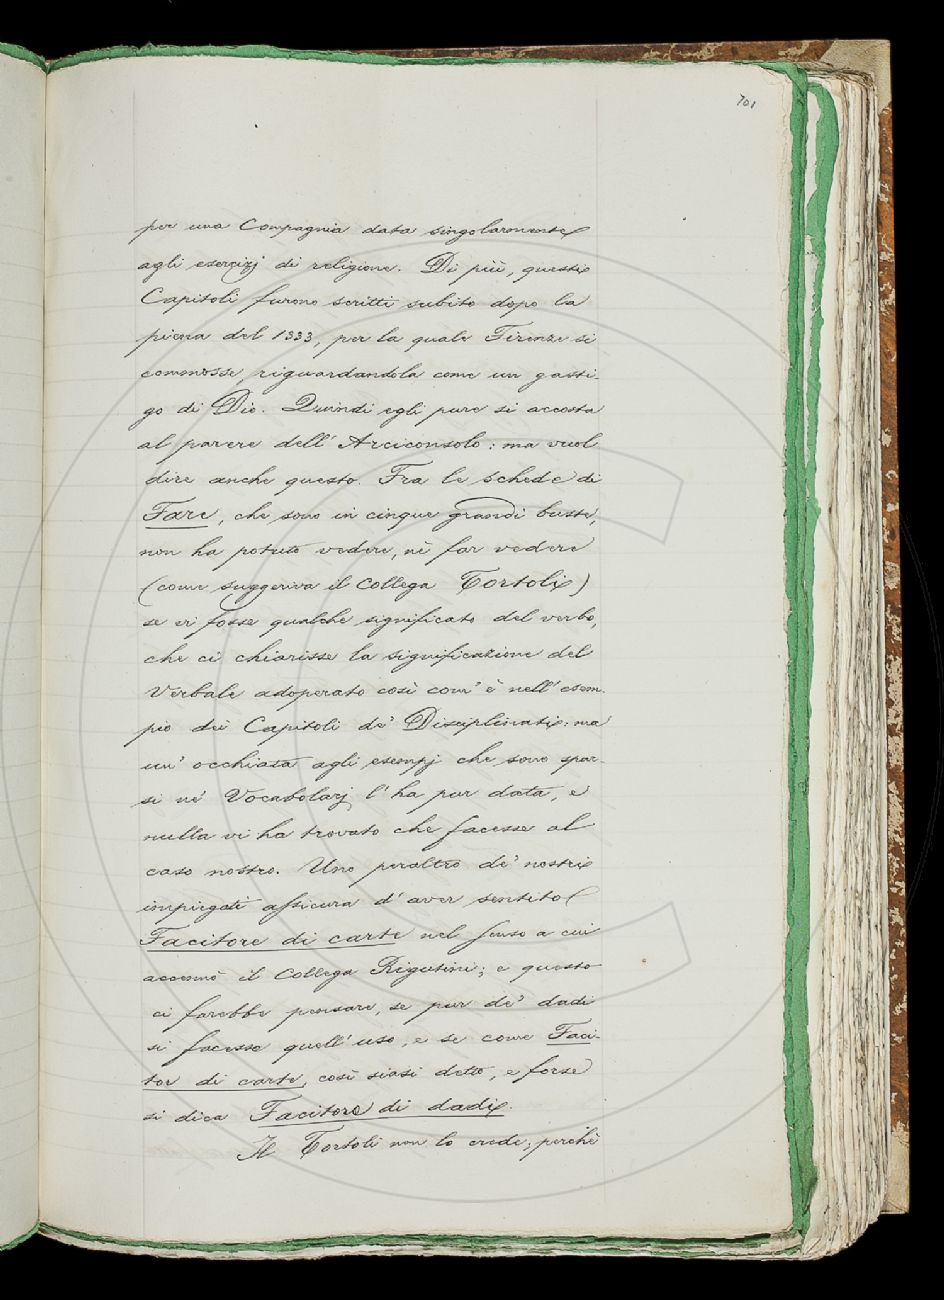 701
per una Compagnia data singolarmente
agli esercizj di religione. Di più, questi
Capitoli furono scritti subito dopo la
piena del 1333, per la quale Firenze si
commosse, riguardandola come un gasti-
go di Dio. Quindi egli pure si accosta
al parere dell'Arciconsolo: ma vuol
dire anche questo. Fra le schede di
Fare, che sono in cinque grandi buste,
non ha potuto vedere, nè far vedere
(come suggeriva il Collega Tortoli)
se vi fosse qualche significato del verbo,
che ci chiarisse la significazione del
Verbale adoperato così com'è nell'esem-
pio dei Capitoli de' Disciplinati: ma
un'occhiata agli esempj che sono spar-
si ne' Vocabolarj l'ha pur data, e
nulla vi ha trovato che facesse al
caso nostro. Uno peraltro de' nostri
impiegati assicura d'aver sentito
Facitore di carte nel senso a cui
accennò il Collega Rigutini; e questo
ci farebbe pensare, se pur de' dadi
si facesse quell'uso, e se come Faci-
tor di carte, così siasi detto, e forse
si dica Facitore di dadi.
Il Tortoli non lo crede; perchè